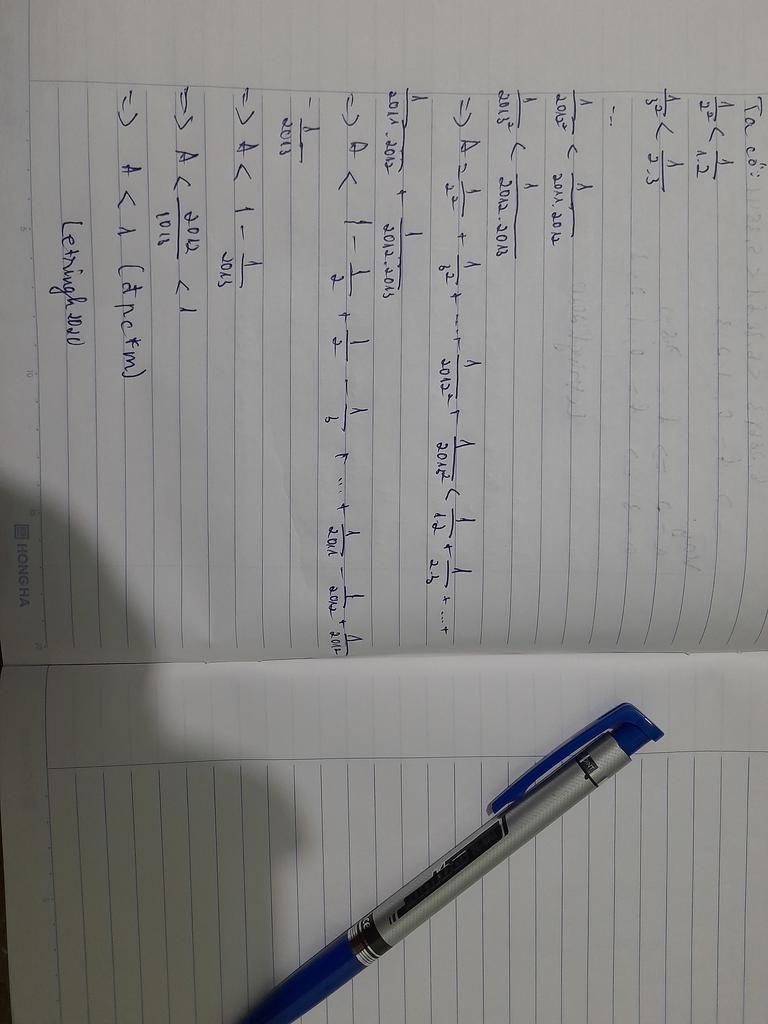 Ta có:
1/2² < 1/1.2
1/3² < 1/2.3
...
1/2012² < 1/2011.2012
1/2013² < 1/2012.2013
=> A = 1/2² + 1/3² + ... + 1/2012² + 1/2013² < 1/1.2 + 1/2.3 + ... +
1/2011.2012 + 1/2012.2013
=> A < 1 - 1/2 + 1/2 - 1/3 + ... + 1/2011 - 1/2012 + 1/2012
- 1/2013
=> A < 1 - 1/2013
=> A < 2012/2013 < 1
=> A < 1 (đpc*m)
HONGHA